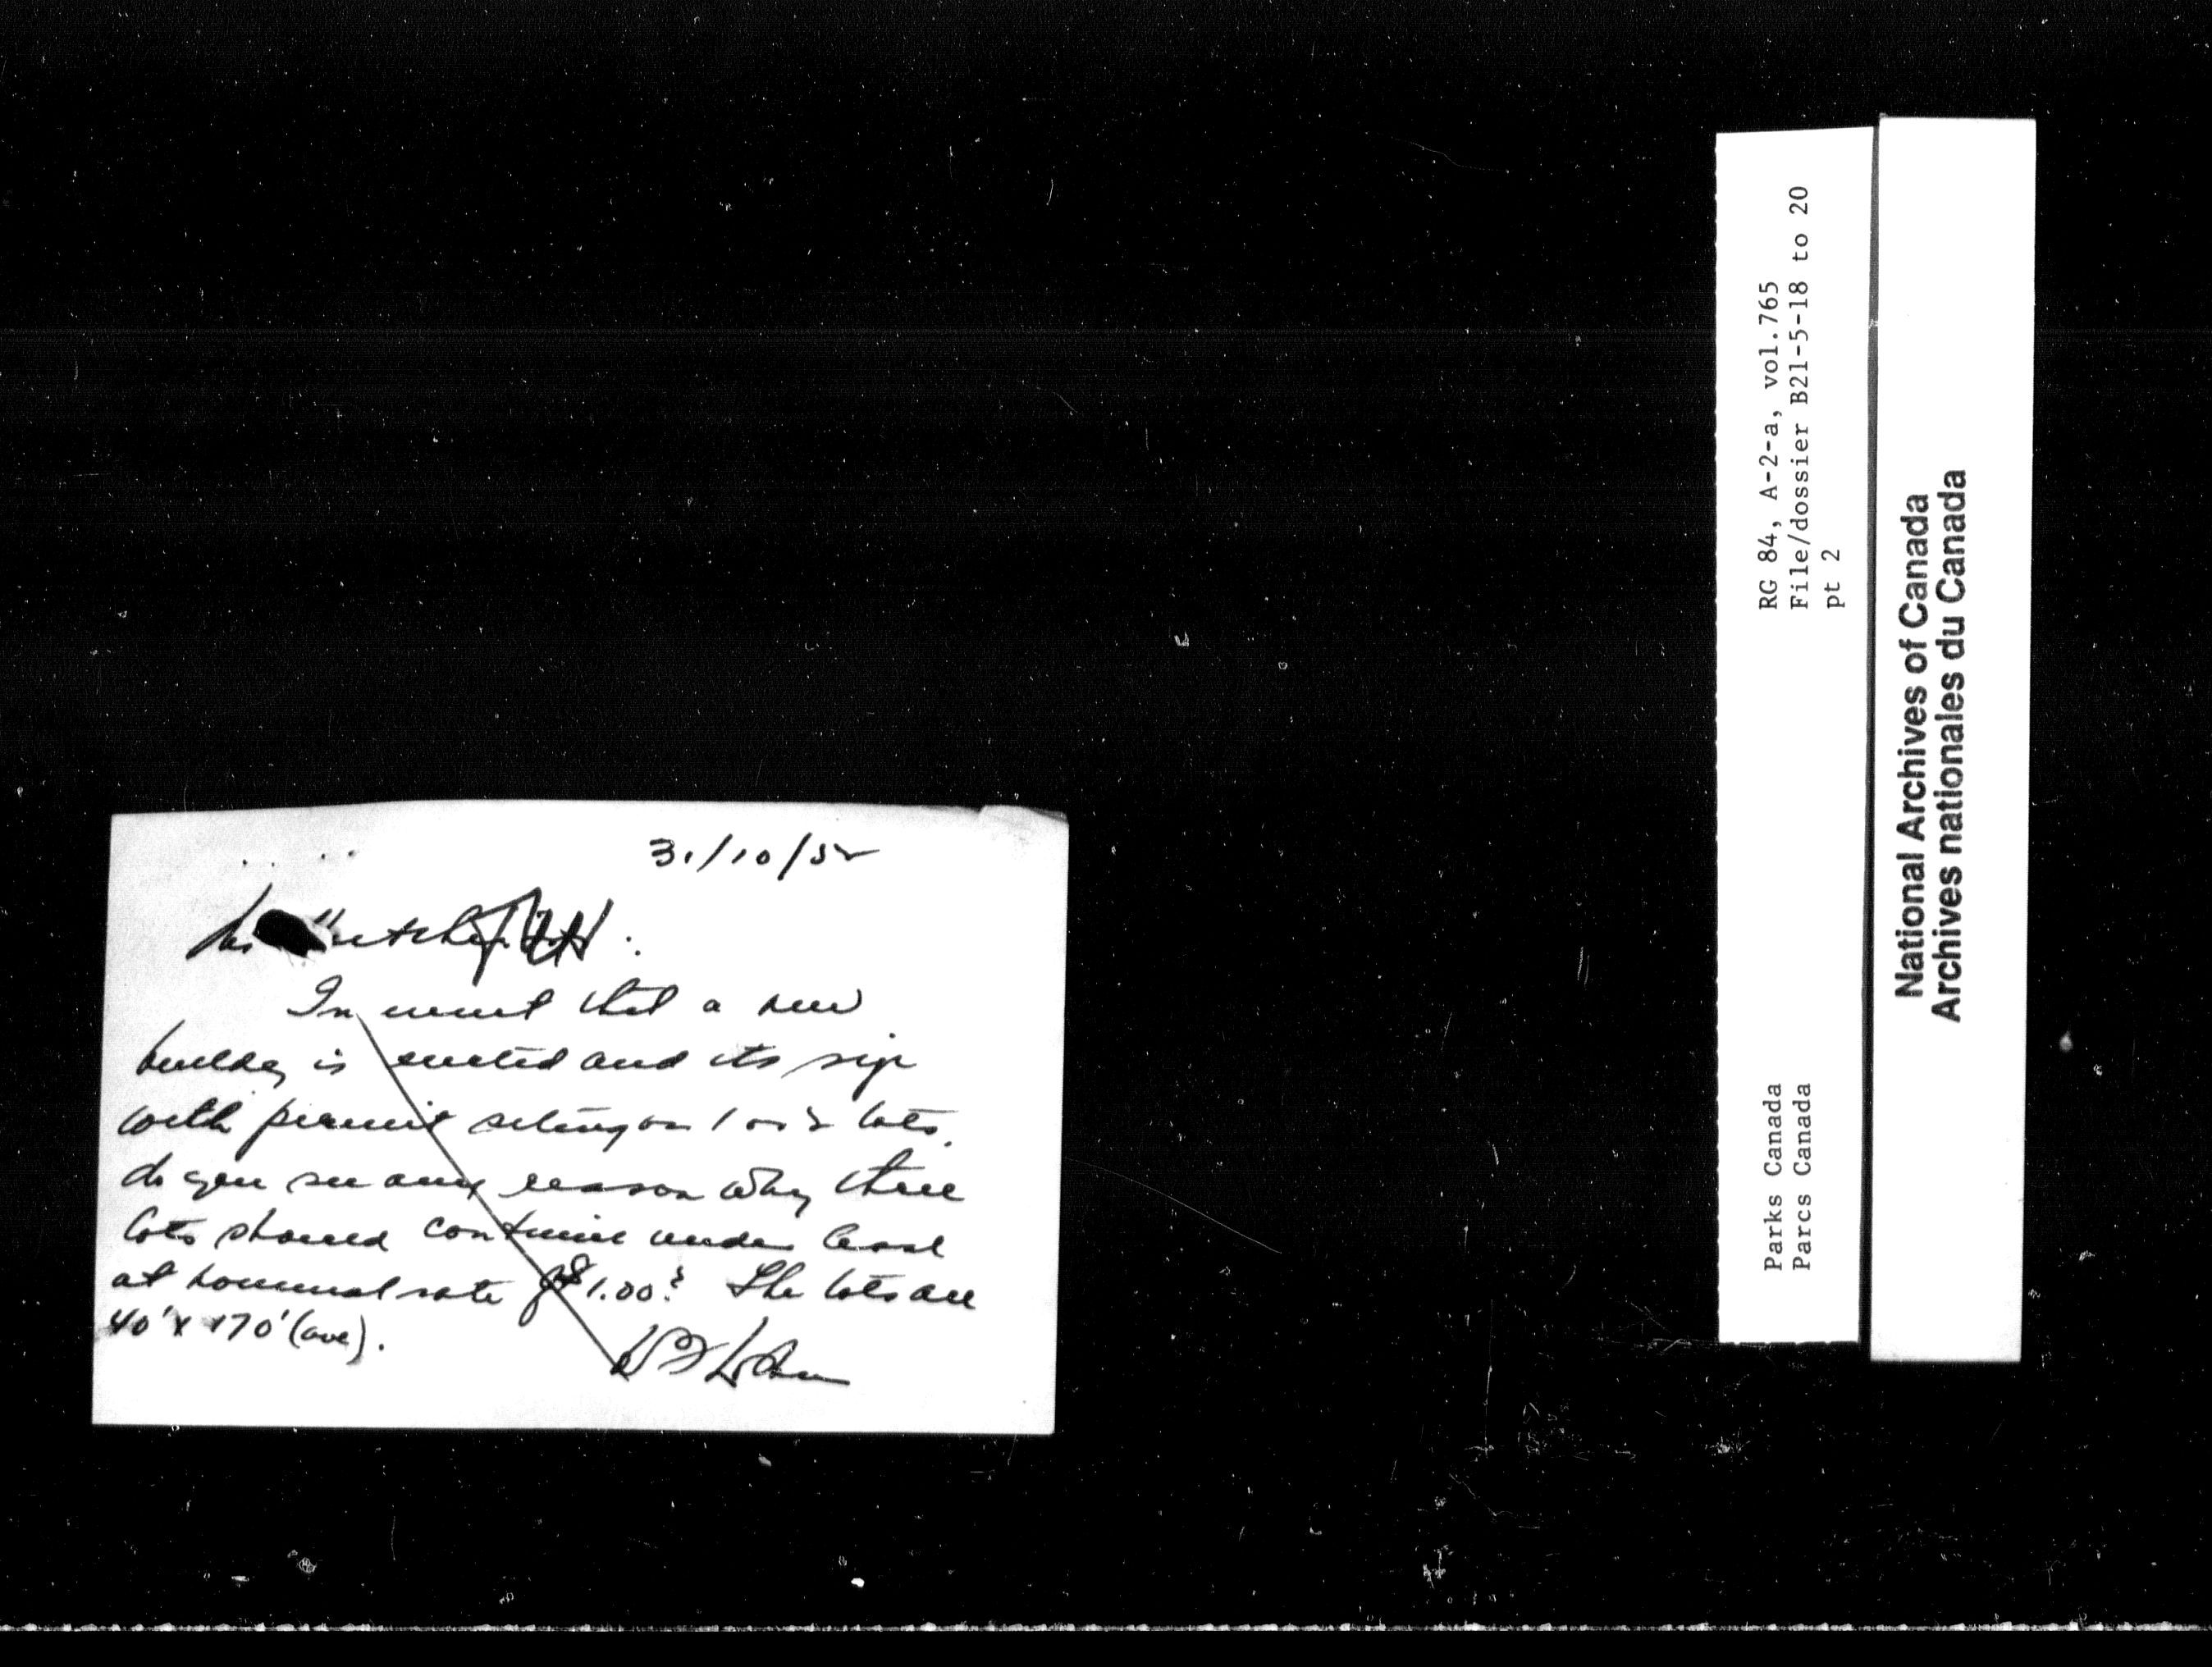 31/10/52
Mr
In event that a new
building is erected and its size
will permit setting on 1 or 2 lots,
do you see any reason why three
lots should continue under lease
at nominal rate of $1.00? The lots are
40' x 170' (ave).
RG 84, A-2-a, vol.765
File/dossier B21-5-18 to 20
pt 2
Parks Canada
Parcs Canada
National Archives of Canada
Archives nationales du Canada